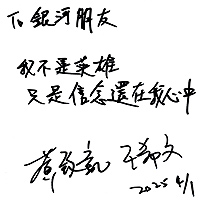 To 銀河朋友
我不是英雄
只是信念還在我心中
2025 4/1